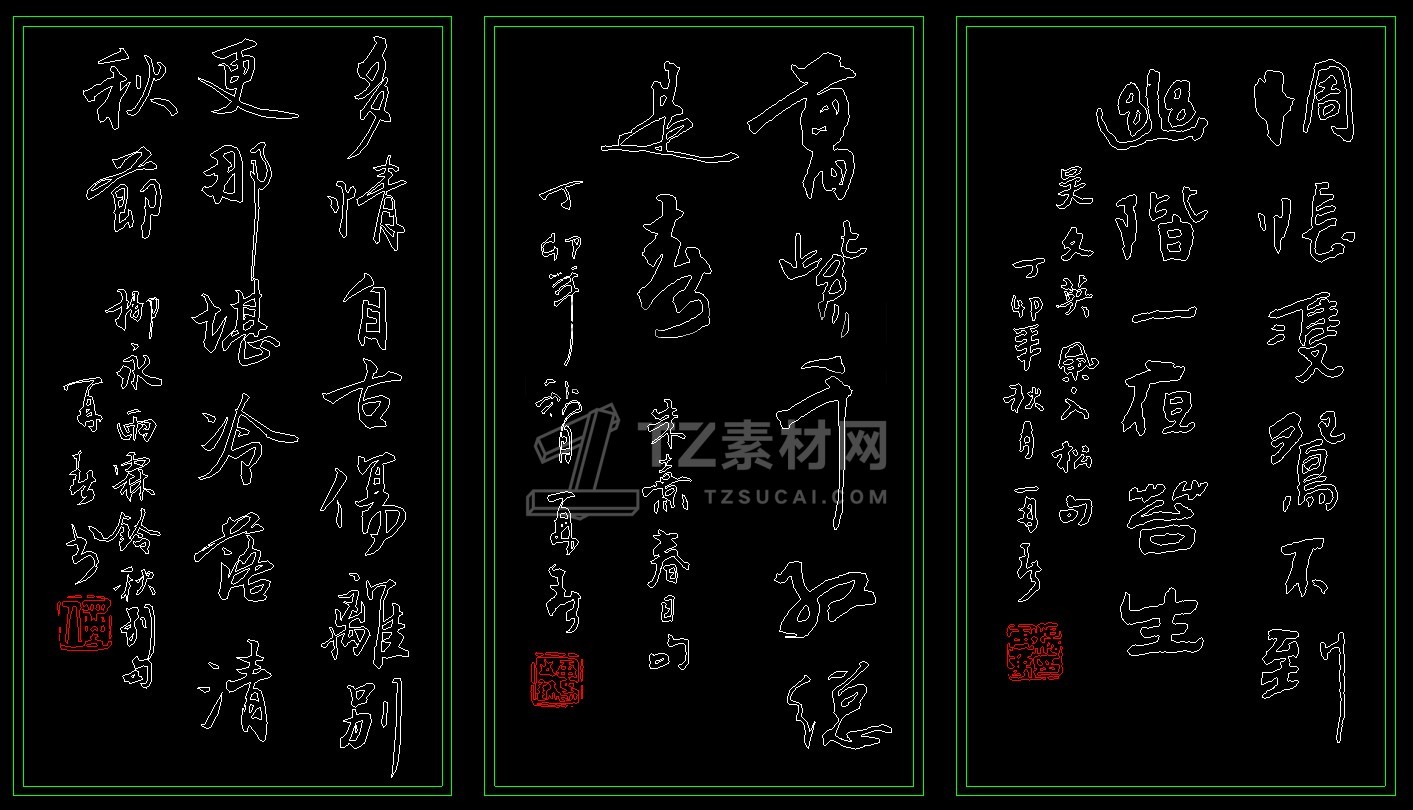 多情自古傷離別
更那堪冷落清
秋節 柳永雨霖鈴秋别句
萬紫千红總
是春 朱熹春日句
丁卯年秋月
惆悵雙鴛不到
幽階一夜苔生
吴文英風入松句
丁卯年秋月
TZ素材网
TZSUCAI.COM